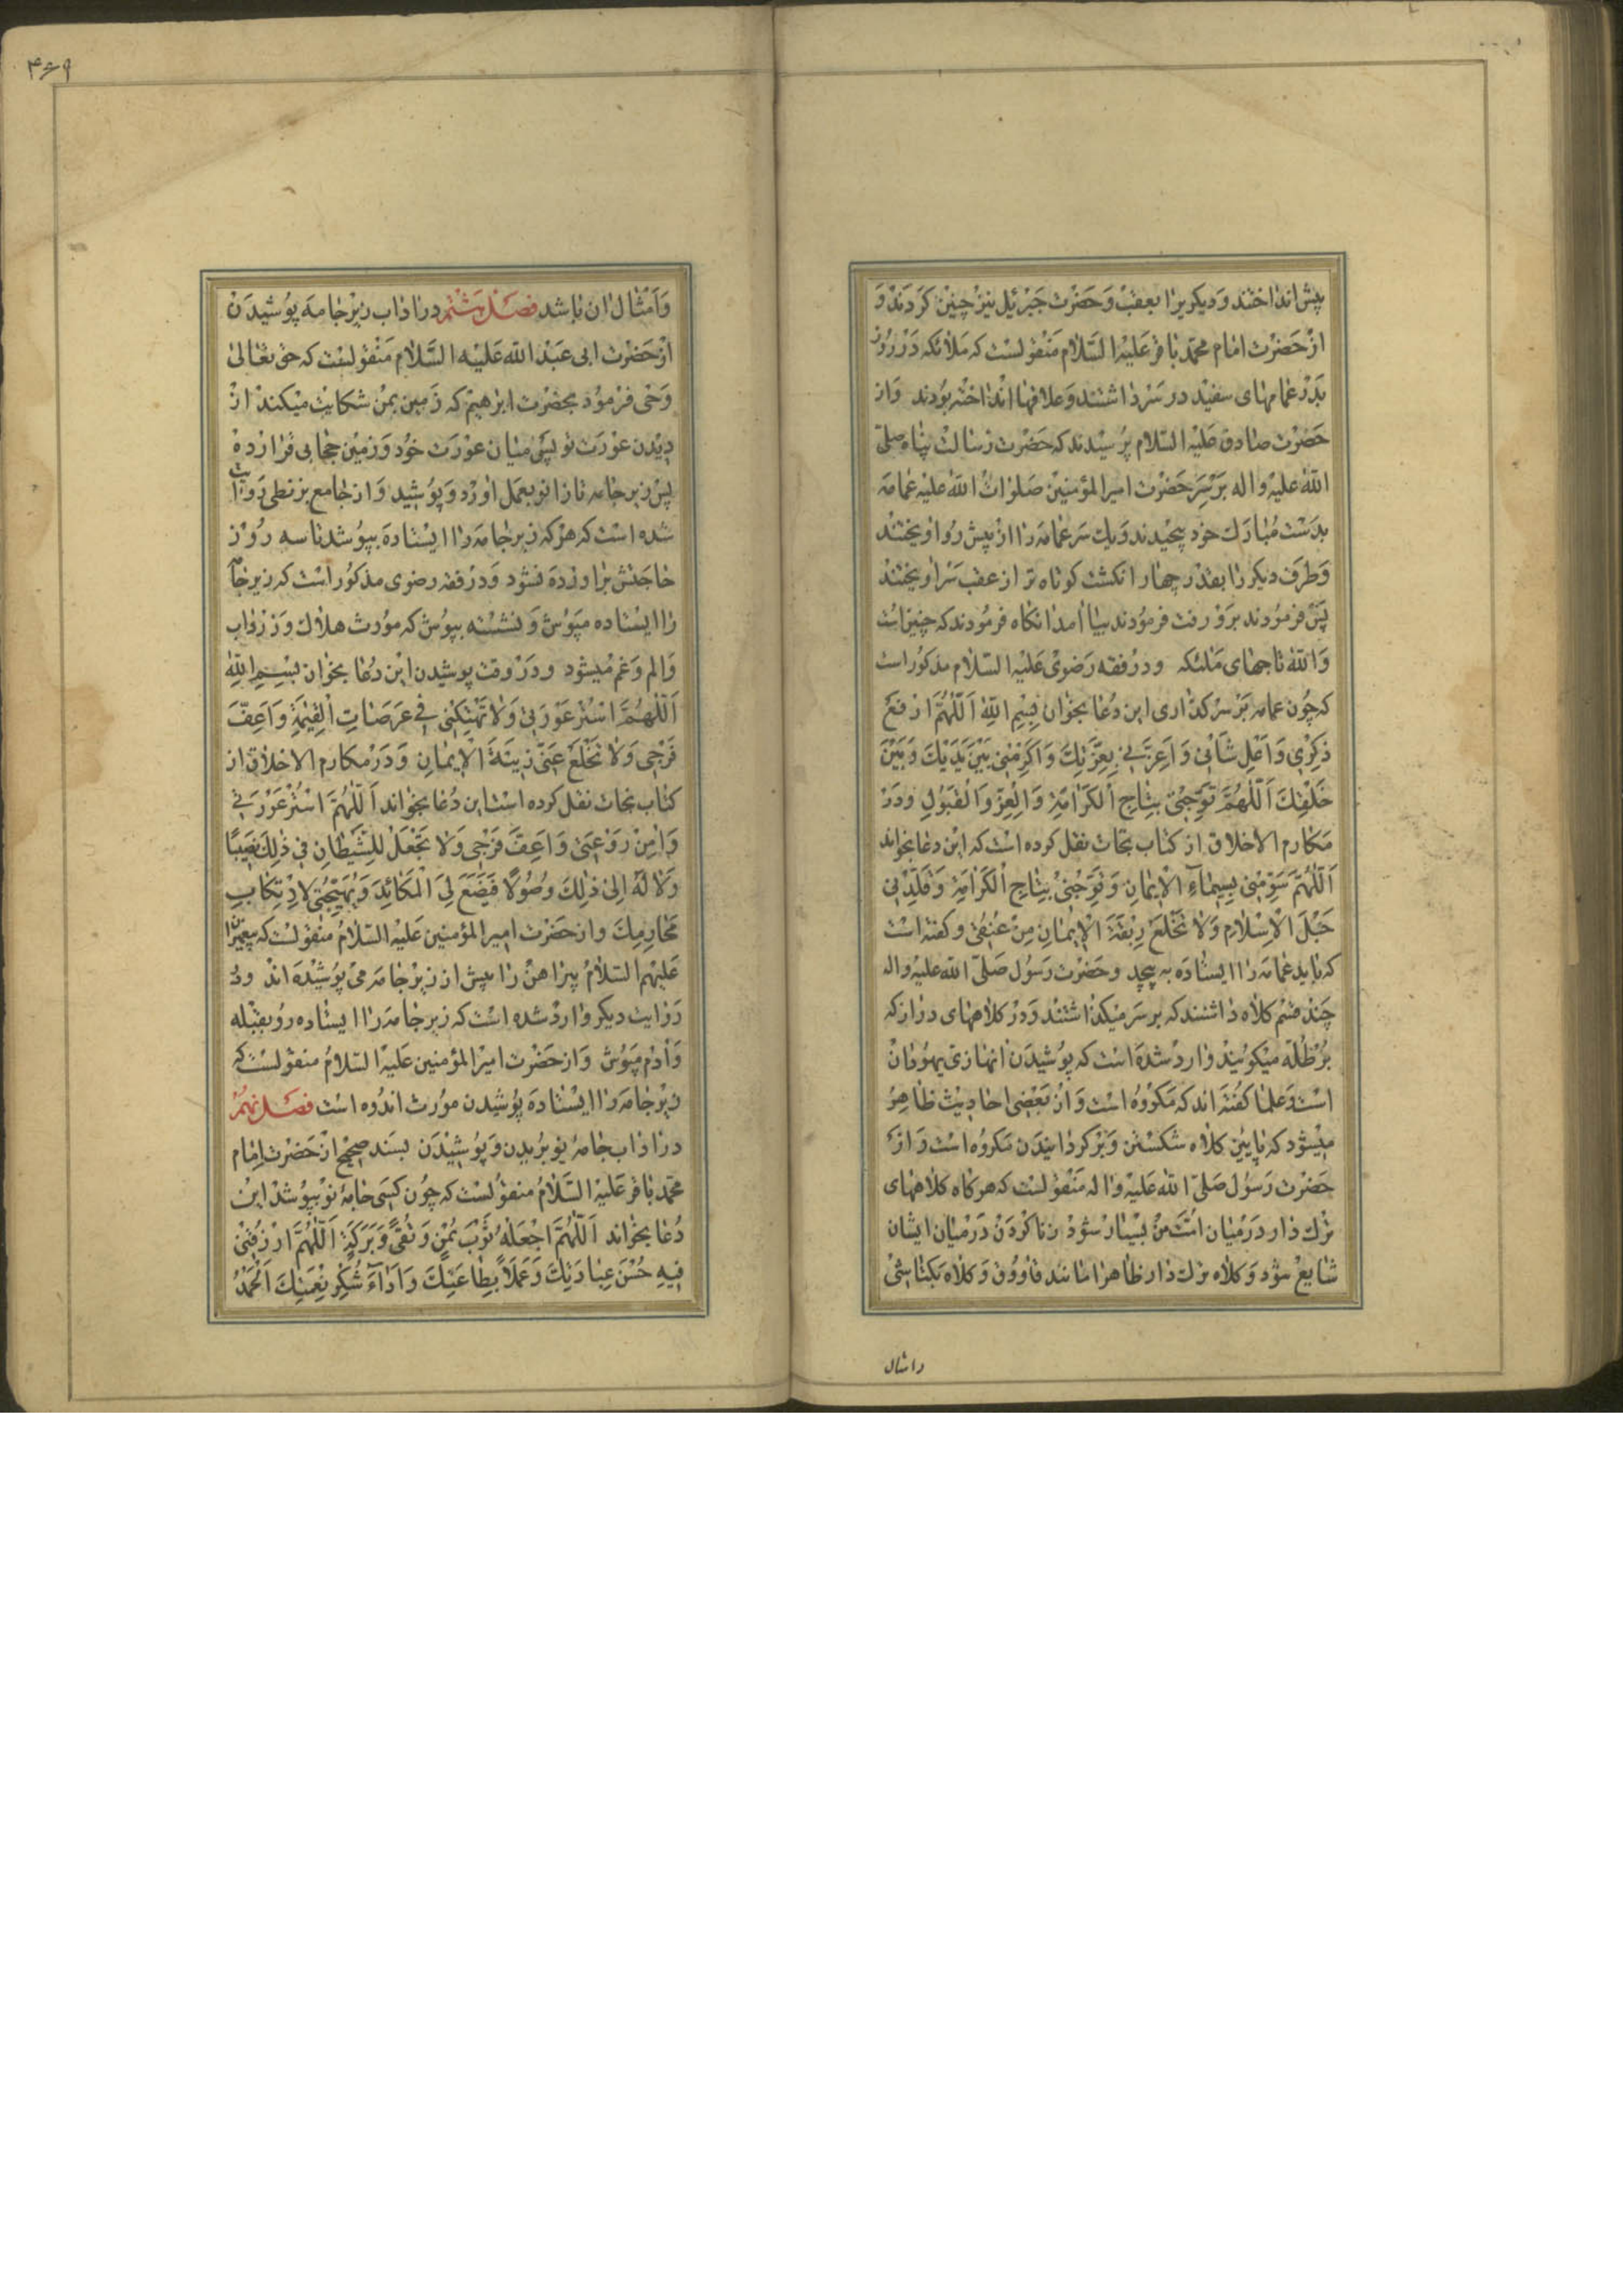 پیش انداختند و دیگریرا بعقب و حضرت جبرئیل نیز چنین کردند و
از حضرت امام محمد باقر علیه السلام منقولست که ملائکه در روز
بدر عمامهای سفید در سر داشتند و علاقها انداخته بودند و از
حضرت صادق علیه السلام پرسیدند که حضرت رسالت پناه صلی
الله علیه و اله بر سر حضرت امیر المؤمنین صلوات الله علیه عمامه
بدست مبارک خود پیچیدند و یک سر عمامه را از پیش رو اویختند
و طرف دیکر را بقدر چهار انکشت کوتاه تر از عقب سر اویختند
پس فرمودند برو رفت فرمودند بیا امد انکاه فرمودند که چنین است
والله تاجهای ملئکه و در فقه رضوی علیه السلام مذکور است
که چون عمامه بر سر کذاری این دعا بخوان بِسْمِ اللهِ اَللّٰهُمَّ ارْفَعْ
ذِكْرِي وَ اَعْلِ شَأْنِي وَ اَعِزَّنِي بِعِزَّتِكَ وَ اَكْرِمْنِي بَيْنَ يَدَيْكَ وَ بَيْنَ
خَلْقِكَ اَللّٰهُمَّ تَوِّجْنِي بِتَاجِ الْكَرَامَةِ وَ الْعِزِّ وَ الْقَبُولِ و در
مکارم الاخلاق از کتاب نجات نقل کرده است که این دعا بخواند
اَللّٰهُمَّ سَوِّمْنِي بِسِيمَاءِ الْإِيمَانِ وَ تَوِّجْنِي بِتَاجِ الْكَرَامَةِ وَ قَلِّدْنِي
حَبْلَ الْإِسْلَامِ وَ لَا تَخْلَعْ رِبْقَةَ الْإِيمَانِ مِنْ عُنُقِي و کفته است
که باید عمامه را ایستاده به پیچد و حضرت رسول صلی الله علیه و اله
چند قسم کلاه داشتند که بر سر میکذاشتند و در کلاههای دراز که
برطله میکویند وارد شده است که پوشیدن انها زی یهودان
است و علما کفته اند که مکروه است و از بعضی احادیث ظاهر
میشود که پایین کلاه شکستن و برکردانیدن مکروه است و از
حضرت رسول صلی الله علیه و اله منقولست که هرکاه کلاههای
ترک دار در میان امت من بسیار شود زنا کردن در میان ایشان
شایع شود و کلاه ترک دار ظاهرا مانند قاووق و کلاه بکتاشی
وامثال
۴۶۹
و امثال ان باشد فصل هشتم در اداب زیر جامه پوشیدن
از حضرت ابی عبد الله علیه السلام منقولست که حق تعالی
وحی فرمود بحضرت ابرهیم که زمین بمن شکایت میکند از
دیدن عورت تو پس میان عورت خود و زمین حجابی قرار ده
پس زیر جامه تا زانو بعمل اورد و پوشید و از جامع بزنطی روایت
شده است که هر که زیر جامه را ایستاده بپوشد تا سه روز
حاجتش براورده نشود و در فقه رضوی مذکور است که زیر جامه
را ایستاده مپوش و نشسته بپوش که مورث هلاک و زرداب
و الم و غم میشود و در وقت پوشیدن این دعا بخوان بِسْمِ اللهِ
اَللّٰهُمَّ اسْتُرْ عَوْرَتِي وَ لَا تَهْتِكْنِي فِي عَرَصَاتِ الْقِيٰمَةِ وَ اَعِفَّ
فَرْجِي وَ لَا تَخْلَعْ عَنِّي زِينَةَ الْإِيمَانِ و در مکارم الاخلاق از
کتاب نجات نقل کرده است این دعا بخواند اَللّٰهُمَّ اسْتُرْ عَوْرَتِي
وَ اٰمِنْ رَوْعَتِي وَ اَعِفَّ فَرْجِي وَ لَا تَجْعَلْ لِلشَّيْطَانِ فِي ذٰلِكَ نَصِيبًا
وَ لَا لَهُ اِلىٰ ذٰلِكَ وُصُولًا فَيَضَعَ لِيَ الْمَكَائِدَ وَ يُهَيِّجَنِي لِارْتِكَابِ
مَحَارِمِكَ و از حضرت امیر المؤمنین علیه السلام منقولست که پیغمبران
علیهم السلام پیراهن را پیش از زیر جامه می پوشیده اند و در
روایت دیکر وارد شده است که زیر جامه را ایستاده رو بقبله
و ادم مپوش و از حضرت امیر المؤمنین علیه السلام منقولست که
زیر جامه را ایستاده پوشیدن مورث اندوه است فصل نهم
در اداب جامه نو بریدن و پوشیدن بسند صحیح از حضرت امام
محمد باقر علیه السلام منقولست که چون کسی جامهٔ نو بپوشد این
دعا بخواند اَللّٰهُمَّ اجْعَلْهُ ثَوْبَ يُمْنٍ وَ تُقًى وَ بَرَكَةٍ اَللّٰهُمَّ ارْزُقْنِي
فِيهِ حُسْنَ عِبَادَتِكَ وَ عَمَلًا بِطَاعَتِكَ وَ اَدَاءَ شُكْرِ نِعْمَتِكَ اَلْحَمْدُ